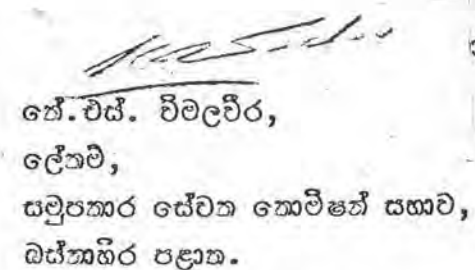 කේ.එස්. විමලවීර,
ලේකම්,
සමුපකාර සේවක කොමිෂන් සභාව,
බස්නාහිර පළාත.